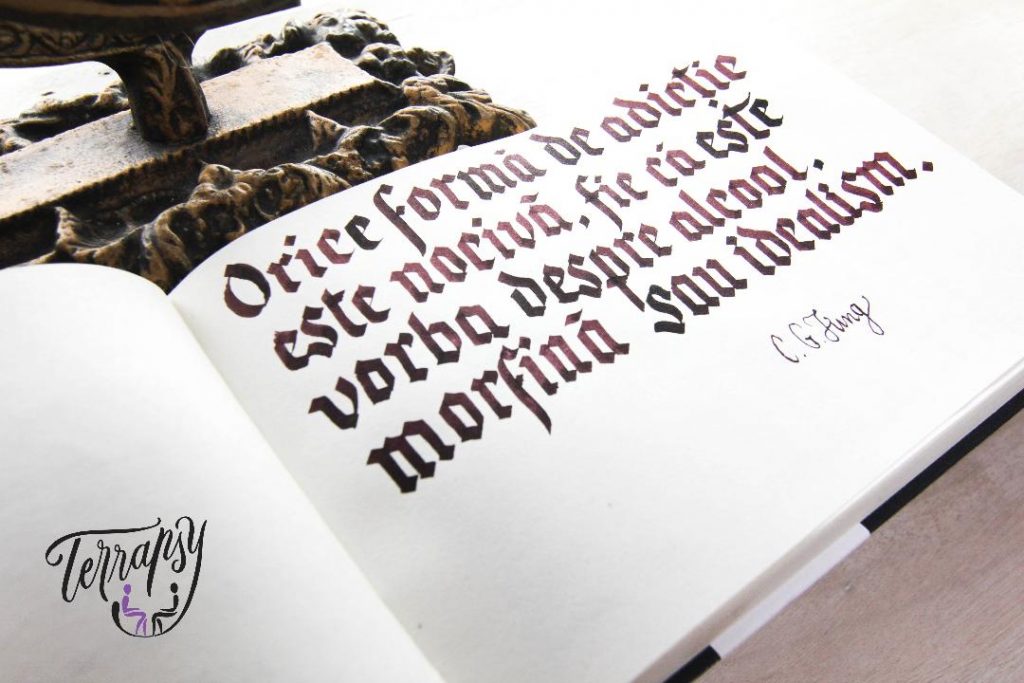 Orice formă de adicție
este nocivă, fie că este
vorba despre alcool,
morfină sau idealism.
C. G. Jung
Terrapsy